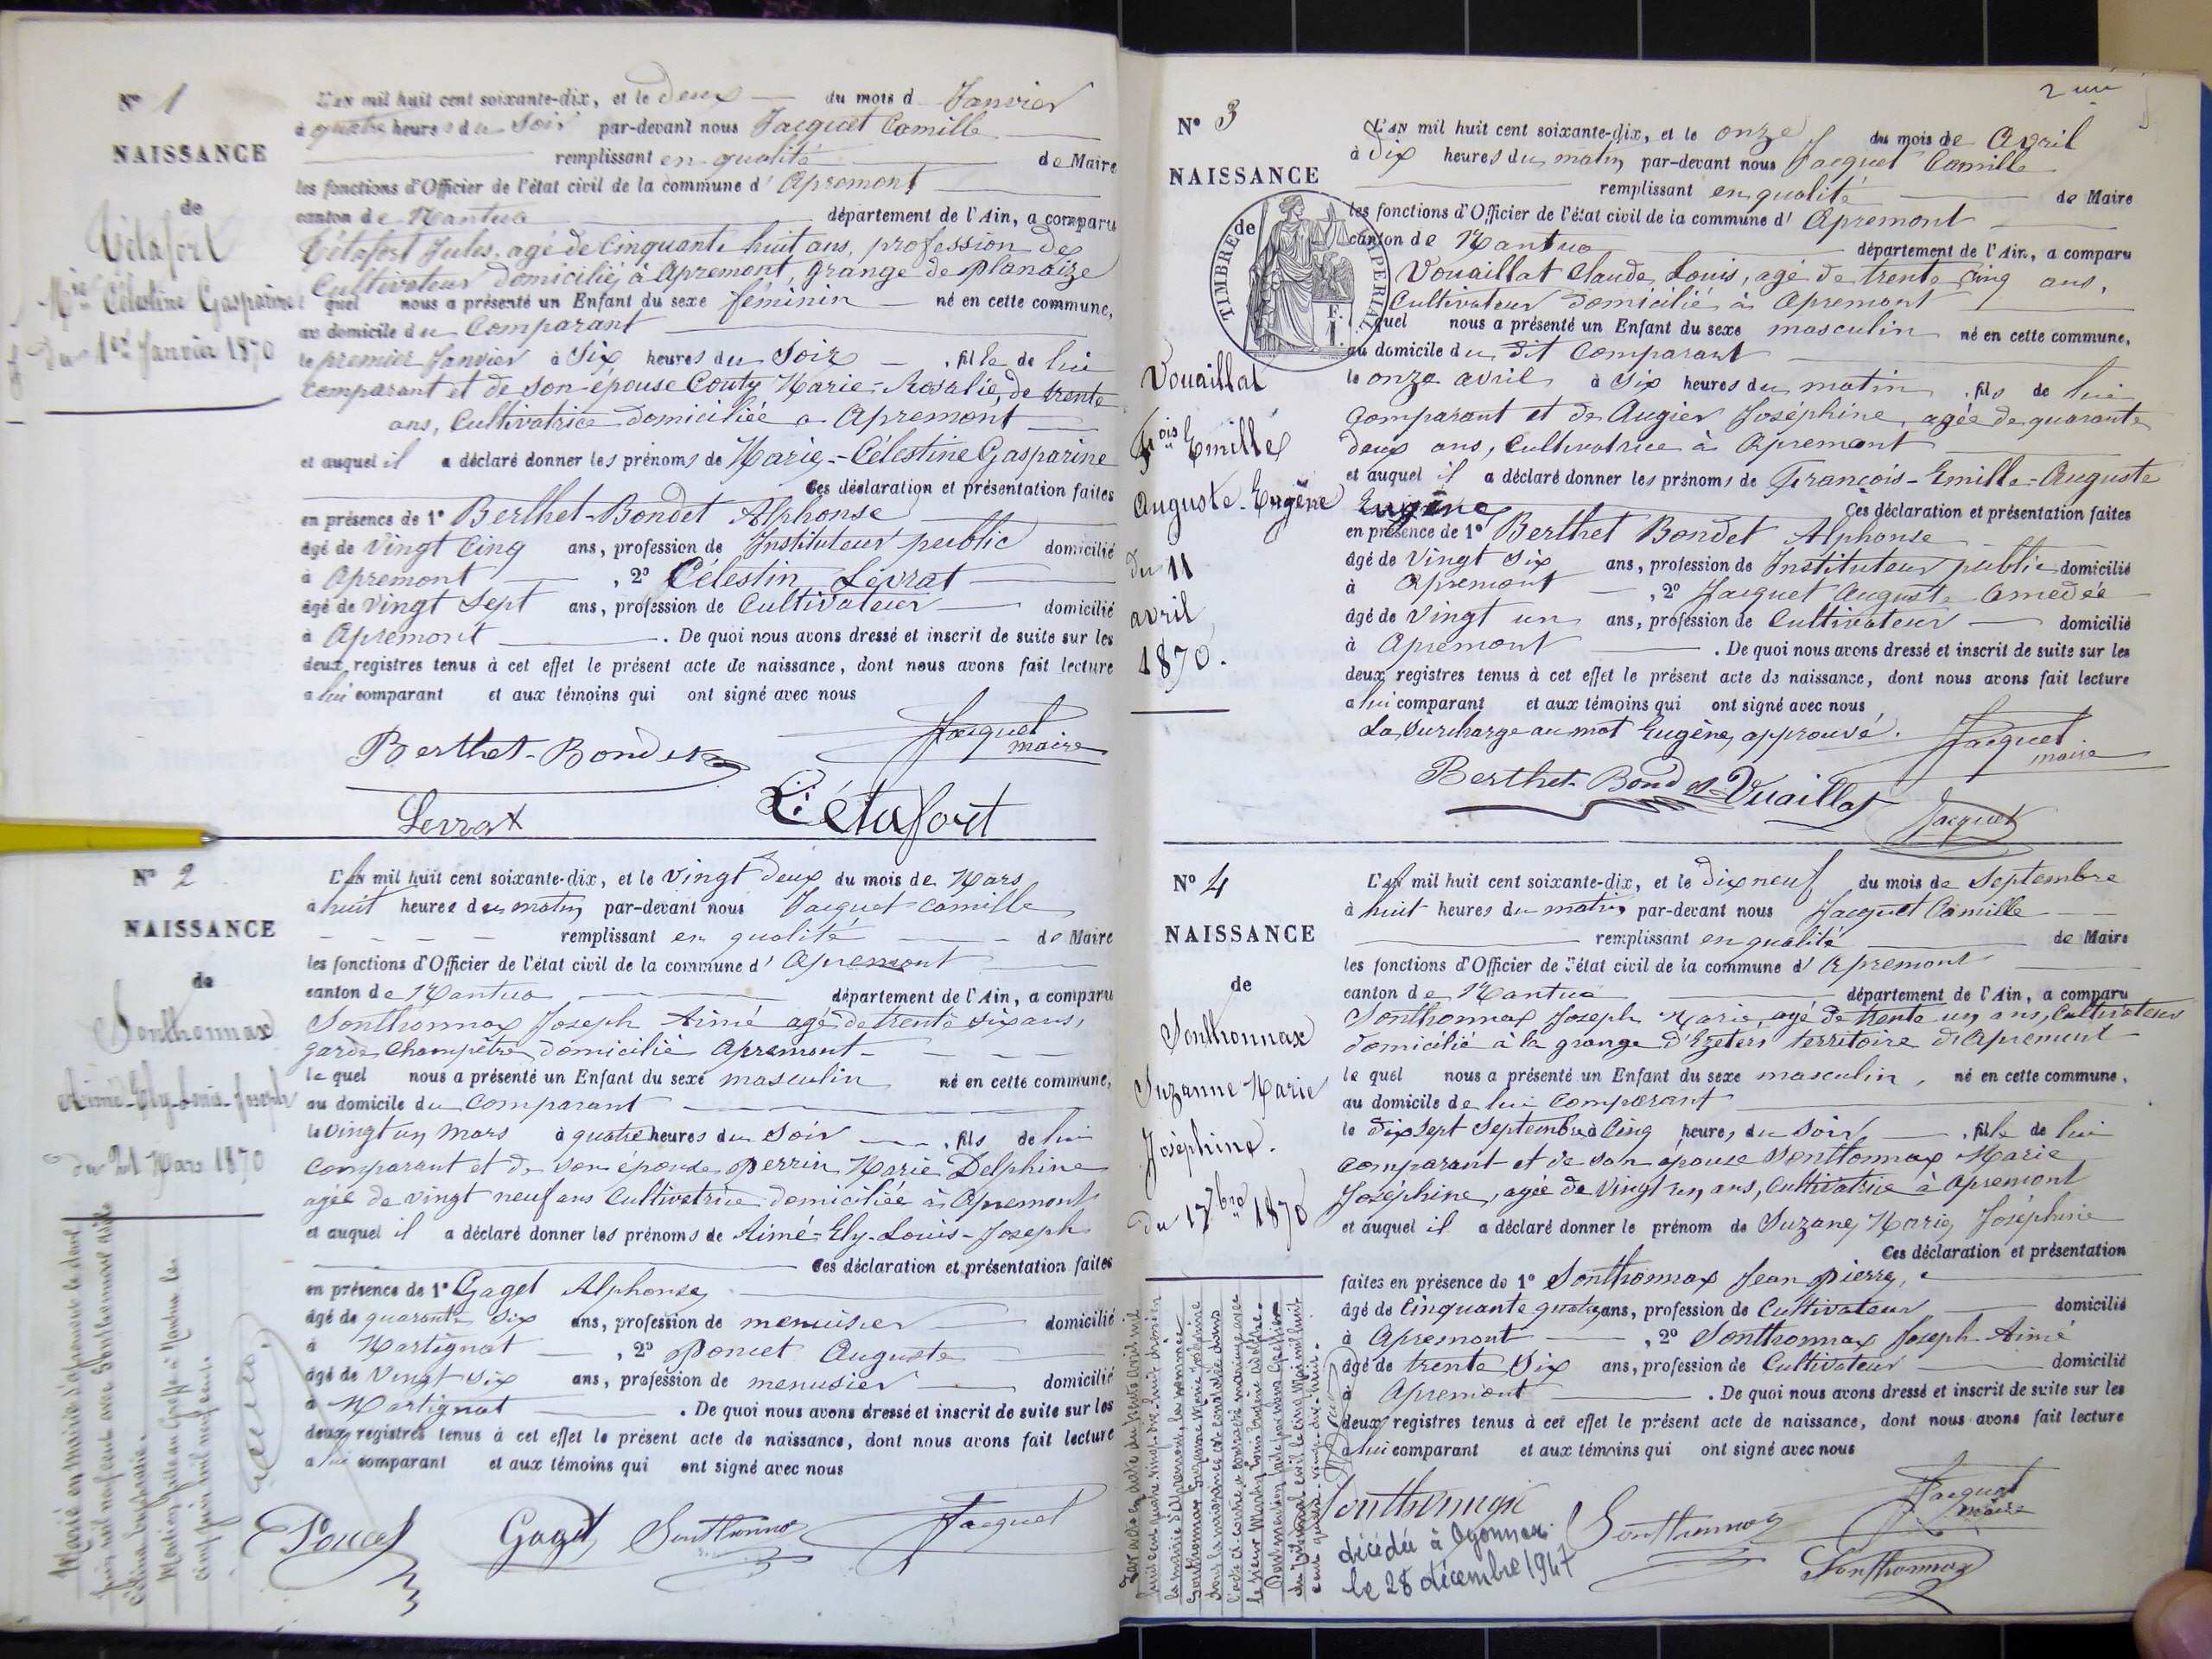 N° 1
NAISSANCE
de
Létafort
Mie Célestine Gasparine
du 1er Janvier 1870
L'AN mil huit cent soixante-dix, et le deux du mois d Janvier
à quatre heures du Soir par-devant nous Jacquet Camille
remplissant en qualité de Maire
les fonctions d'Officier de l'état civil de la commune d' Apremont
canton de Nantua département de l'Ain, a comparu
Létafort Jules, agé de Cinquante huit ans, profession de
Cultivateur domicilié à Apremont, grange de planaize
quel nous a présenté un Enfant du sexe féminin né en cette commune,
au domicile du Comparant
le premier Janvier à Six heures du Soir , fille de lui
Comparant et de son épouse Couty Marie-Rosalie, de trente
ans, Cultivatrice domiciliée a Apremont
et auquel il a déclaré donner les prénoms de Marie-Célestine Gasparine
Ces déclaration et présentation faites
en présence de 1° Berthet-Bondet Alphonse
âgé de Vingt Cinq ans, profession de Instituteur public domicilié
à Apremont , 2° Célestin Lévrat
âgé de Vingt Sept ans, profession de Cultivateur domicilié
à Apremont . De quoi nous avons dressé et inscrit de suite sur les
deux registres tenus à cet effet le présent acte de naissance, dont nous avons fait lecture
a lui comparant et aux témoins qui ont signé avec nous
Berthet-Bondet
Jacquet
maire
Levrat
Létafort
N° 2
NAISSANCE
de
Sonthonnax
Aimé-Ely-Louis-Joseph
du 21 Mars 1870
L'AN mil huit cent soixante-dix, et le Vingt deux du mois de Mars
à huit heures du matin par-devant nous Jacquet Camille
remplissant en qualité de Maire
les fonctions d'Officier de l'état civil de la commune d' Apremont
canton de Nantua département de l'Ain, a comparu
Sonthonnax Joseph Aimé agé de trente six ans,
garde Champêtre domicilié Apremont
le quel nous a présenté un Enfant du sexe masculin né en cette commune,
au domicile du Comparant
le vingt un Mars à quatre heures du Soir , fils de lui
Comparant et de son épouse Perrin Marie Delphine
agée de vingt neuf ans Cultivatrice domiciliée à Apremont
et auquel il a déclaré donner les prénoms de Aimé-Ely-Louis-Joseph
Ces déclaration et présentation faites
en présence de 1° Gaget Alphonse
âgé de quarante Six ans, profession de menuisier domicilié
à Martignat , 2° Poncet Auguste
âgé de Vingt six ans, profession de menusier domicilié
à Martignat . De quoi nous avons dressé et inscrit de suite sur les
deux registres tenus à cet effet le présent acte de naissance, dont nous avons fait lecture
a lui comparant et aux témoins qui ont signé avec nous
Poncet
Gaget
Sonthonnax
Jacquet
Marié en mairie d'apremont le deux
juin mil neuf cent avec Sonthonnax
Mention faite au Greffe à Nantua le
cinq juin mil neuf cent
2
N° 3
NAISSANCE
de
TIMBRE IMPERIAL
Vouaillat
Fois Emille
Auguste-Eugène
du 11
avril
1870.
L'AN mil huit cent soixante-dix, et le onze du mois de Avril
à Dix heures du matin par-devant nous Jacquet Camille
remplissant en qualité de Maire
les fonctions d'Officier de l'état civil de la commune d' Apremont
canton de Nantua département de l'Ain, a comparu
Vouaillat Claude Louis, agé de trente cinq ans,
Cultivateur Domicilié à Apremont
quel nous a présenté un Enfant du sexe masculin né en cette commune,
au domicile du dit Comparant
le onze avril à Six heures du matin , fils de lui
Comparant et de Augier Joséphine, agée de quarante
deux ans, Cultivatrice à Apremont
et auquel il a déclaré donner les prénoms de François-Emille-Auguste
Eugène Ces déclaration et présentation faites
en présence de 1° Berthet Bondet Alphonse
âgé de Vingt Six ans, profession de Instituteur public domicilié
à Apremont , 2° Jacquet Auguste Amédée
âgé de Vingt un ans, profession de Cultivateur domicilié
à Apremont . De quoi nous avons dressé et inscrit de suite sur les
deux registres tenus à cet effet le présent acte de naissance, dont nous avons fait lecture
a lui comparant et aux témoins qui ont signé avec nous
La Surcharge au mot Eugène, approuvé.
Jacquet
maire
Berthet-Bondet
Vuaillat
Jacquet
N° 4
NAISSANCE
de
Sonthonnax
Suzanne Marie
Joséphine.
du 17 7bre 1870
L'AN mil huit cent soixante-dix, et le Dix neuf du mois de Septembre
à huit heures du matin par-devant nous Jacquet Camille
remplissant en qualité de Maire
les fonctions d'Officier de l'état civil de la commune d' Apremont
canton de Nantua département de l'Ain, a comparu
Sonthonnax Joseph Marie, agé de trente un ans, Cultivateur
domicilié à la grange territoire d'Apremont
le quel nous a présenté un Enfant du sexe masculin, né en cette commune,
au domicile de lui Comparant
le dix sept Septembre à Cinq heures du Soir , fille de lui
Comparant et de son épouse Sonthonnax Marie
Joséphine, agée de Vingt un ans, Cultivatrice à Apremont
et auquel il a déclaré donner le prénom de Suzane Marie Joséphine
Ces déclaration et présentation
faites en présence de 1° Sonthonnax Jean Pierre,
âgé de Cinquante quatre ans, profession de Cultivateur domicilié
à Apremont , 2° Sonthonnax Joseph-Aimé
âgé de trente Six ans, profession de Cultivateur domicilié
à Apremont . De quoi nous avons dressé et inscrit de suite sur les
deux registres tenus à cet effet le présent acte de naissance, dont nous avons fait lecture
a lui comparant et aux témoins qui ont signé avec nous
Sonthonnax
Sonthonnax
Jacquet
maire
Sonthonnax
décédée à Oyonnax
le 28 décembre 1947